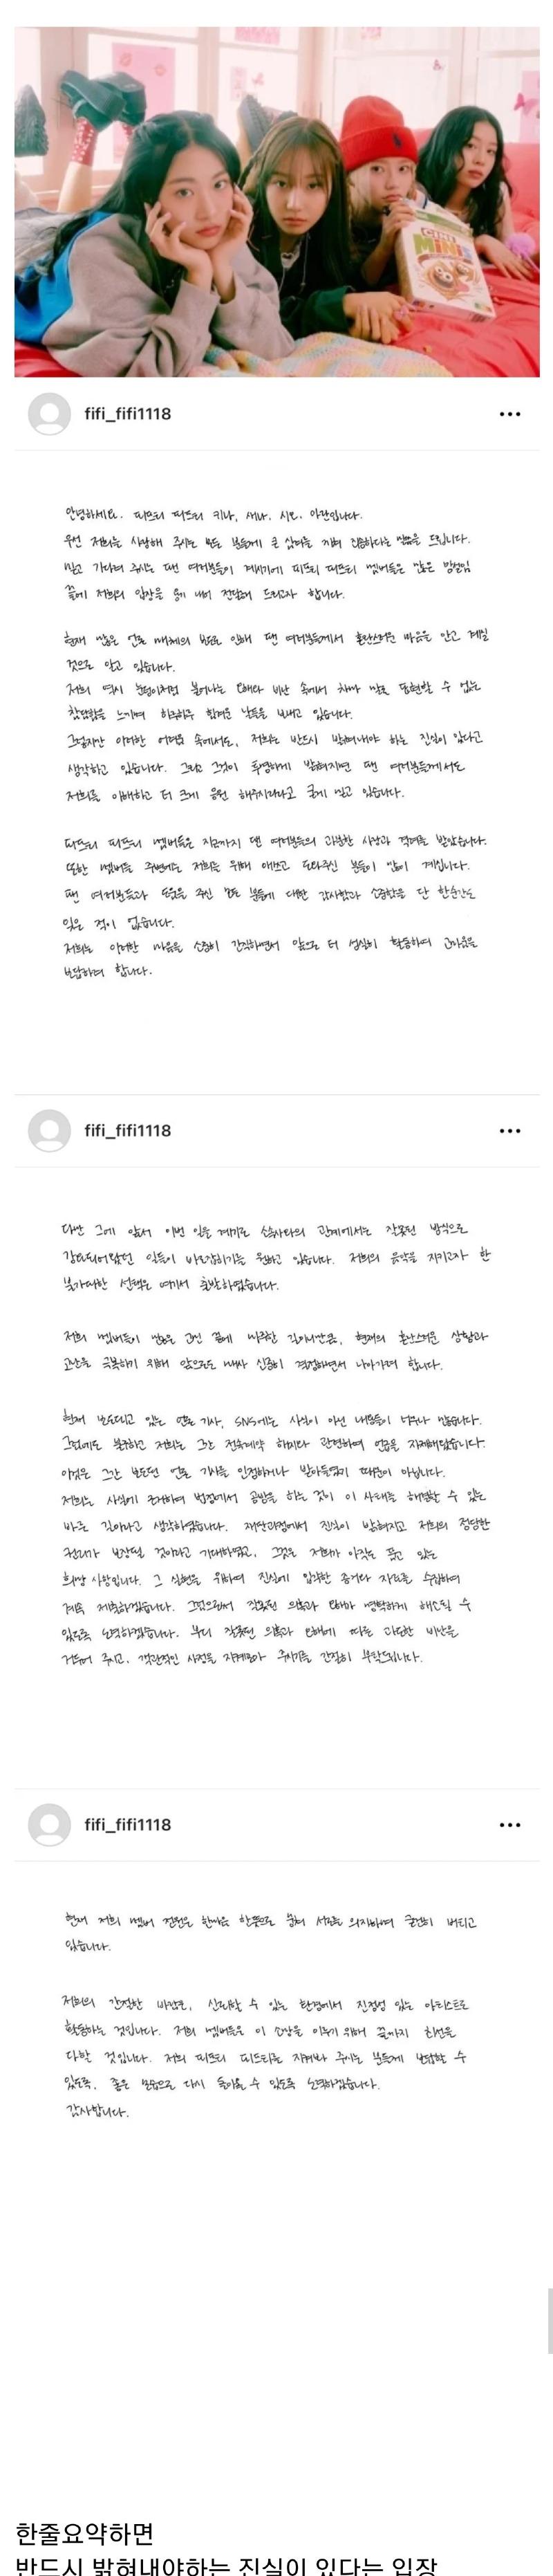 CINI
MINIS
fifi_fifi1118
안녕하세요. 피프티 피프티 키나, 새나, 시오, 아란입니다.
우선 저희를 사랑해 주시는 모든 분들께 큰 심려를 끼쳐 죄송하다는 말씀을 드립니다.
믿고 기다려 주시는 팬 여러분들이 계시기에 피프티 피프티 멤버들은 많은 망설임
끝에 저희의 입장을 용기 내어 전달해 드리고자 합니다.
현재 많은 언론 매체의 보도로 인해 팬 여러분들께서 혼란스러운 마음을 안고 계실
것으로 알고 있습니다.
저희 역시 눈덩이처럼 불어나는 오해와 비난 속에서 차마 말로 표현할 수 없는
참담함을 느끼며 하루하루 힘겨운 날들을 보내고 있습니다.
그렇지만 이러한 어려움 속에서도, 저희는 반드시 밝혀내야 하는 진실이 있다고
생각하고 있습니다. 그리고 그것이 투명하게 밝혀지면 팬 여러분들께서도
저희를 이해하고 더 크게 응원 해주시리라고 굳게 믿고 있습니다.
피프티 피프티 멤버들은 지금까지 팬 여러분들의 과분한 사랑과 격려를 받았습니다.
또한 멤버들 주변에는 저희를 위해 애쓰고 도와주신 분들이 많이 계십니다.
팬 여러분들과 도움을 주신 모든 분들에 대한 감사함과 소중함을 단 한순간도
잊은 적이 없습니다.
저희는 이러한 마음을 소중히 간직하면서 앞으로 더 성실히 활동하여 고마움을
보답하려 합니다.
fifi_fifi1118
다만 그에 앞서 이번 일을 계기로 소속사와의 관계에서는 잘못된 방식으로
강요되어왔던 일들이 바로잡히기를 원하고 있습니다. 저희의 음악을 지키고자 한
불가피한 선택은 여기서 출발하였습니다.
저희 멤버들이 많은 고민 끝에 마주한 길이니만큼, 현재의 혼란스러운 상황과
고난을 극복하기 위해 앞으로도 매사 신중히 결정하면서 나아가려 합니다.
현재 보도되고 있는 언론 기사, SNS에는 사실이 아닌 내용들이 너무나 많습니다.
그럼에도 불구하고 저희는 그간 전속계약 해지와 관련하여 언급을 자제해왔습니다.
이것은 그간 보도된 언론 기사를 인정하거나 받아들였기 때문이 아닙니다.
저희는 사실에 근거하여 법정에서 공방을 하는 것이 이 사태를 해결할 수 있는
바른 길이라고 생각하였습니다. 재판과정에서 진실이 밝혀지고 저희의 정당한
권리가 보장될 것이라고 기대하였고, 그것은 저희가 아직도 품고 있는
희망 사항입니다. 그 실현을 위하여 진실에 입각한 증거와 자료를 수집하여
계속 제출하겠습니다. 그럼으로써 잘못된 의혹과 오해가 명확하게 해소될 수
있도록 노력하겠습니다. 부디 잘못된 의혹과 오해에 따른 과도한 비난을
거두어 주시고, 객관적인 사정을 지켜보아 주시기를 간절히 부탁드립니다.
fifi_fifi1118
현재 저희 멤버 전원은 한마음 한뜻으로 뭉쳐 서로를 의지하며 굳건히 버티고
있습니다.
저희의 간절한 바람은, 신뢰할 수 있는 환경에서 진정성 있는 아티스트로
활동하는 것입니다. 저희 멤버들은 이 소망을 이루기 위해 끝까지 최선을
다할 것입니다. 저희 피프티 피프티를 지켜봐 주시는 분들께 보답할 수
있도록, 좋은 모습으로 다시 돌아올 수 있도록 노력하겠습니다.
감사합니다.
한줄요약하면
반드시 밝혀내야하는 진실이 있다는 입장